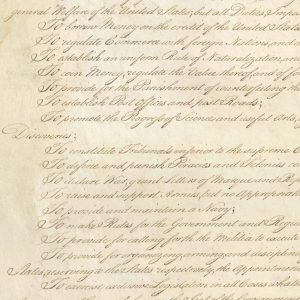 general Welfare of the United States; but all Duties, Impos
To borrow Money on the credit of the United States
To regulate Commerce with foreign Nations, and a
To establish an uniform Rule of Naturalization, an
To coin Money, regulate the Value thereof, and of for
To provide for the Punishment of counterfeiting the
To establish Post Offices and post Roads;
To promote the Progress of Science and useful Arts, by
Discoveries;
To constitute Tribunals inferior to the supreme C
To define and punish Piracies and Felonies co
To declare War, grant Letters of Marque and Rep
To raise and support Armies, but no Appropria
To provide and maintain a Navy;
To make Rules for the Government and Regul
To provide for calling forth the Militia to execute
To provide for organizing, arming, and disciplin
States, reserving to the States respectively, the Appointment
To exercise exclusive Legislation in all Cases what